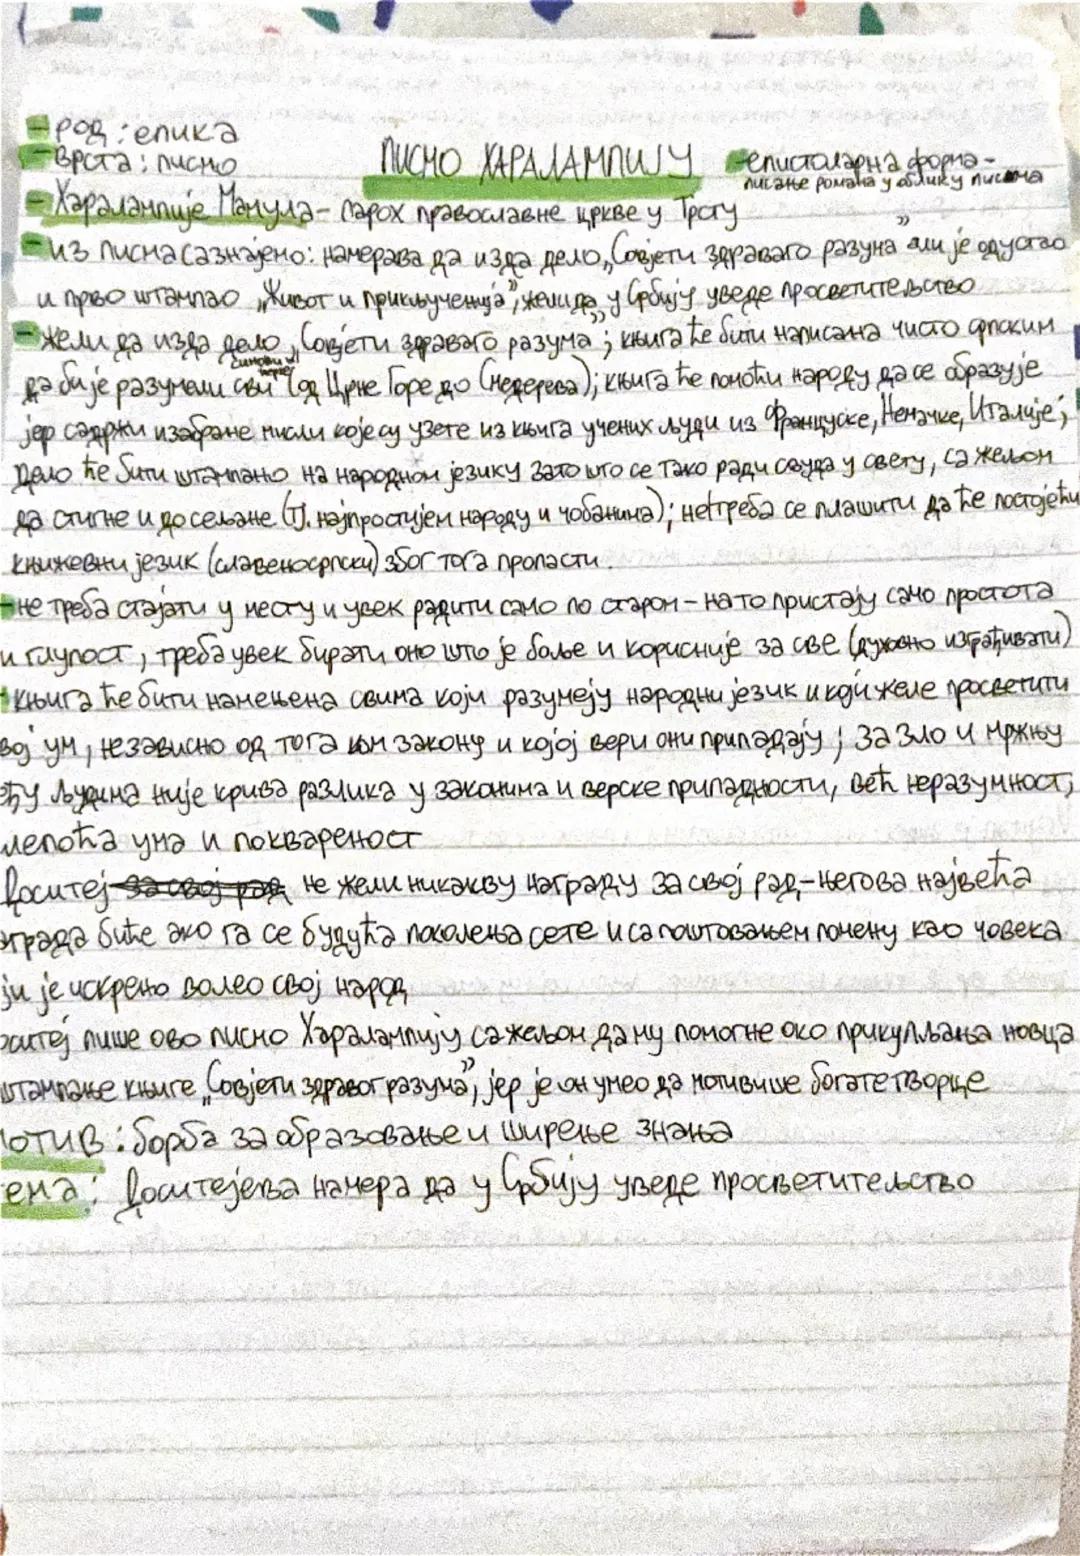 - род : епика
- врста : писмо
ПИСМО ХАРАЛАМПИЈУ
- епистоларна форма -
писање романа у облику писма
- Харалампије Мамула - парох православне цркве у Трсту
- из писма сазнајемо: намерава да изда дело „Совјети здраваго разума" али је одустао
и прво штампао „Живот и прикљученија", жели да у Србију уведе просветитељство
- жели да изда дело „Совјети здраваго разума"; књига ће бити написана чисто српским
да би је разумели сви синови и кћери (од Црне Горе до Смедерева); књига ће помоћи народу да се образује
јер садржи изабране мисли које су узете из књига учених људи из Француске, Немачке, Италије;
дело ће бити штампано на народном језику зато што се тако ради свуда у свету, са жељом
да стигне и до сељане (тј. најпростијем народу и чобанима); не треба се плашити да ће постојећи
књижевни језик (славеносрпски) због тога пропасти.
- не треба стајати у месту и увек радити само по старом - на то пристају само простота
и глупост, треба увек бирати оно што је боље и корисније за све (духовно изграђивати)
- књига ће бити намењена свима који разумеју народни језик и који желе просветити
вој ум, независно од тога ком закону и којој вери они припадају; за зло и мржњу
ђу људима није крива разлика у законима и верске припадности, већ неразумност,
лепоћа ума и поквареност
Доситеј за свој рад не жели никакву награду за свој рад - његова највећа
аграда биће ако га се будућа поколења сете и са поштовањем помену као човека
ји је искрено волео свој народ
оситеј пише ово писмо Харалампију са жељом да му помогне око прикупљања новца
штампање књиге „Совјети здравог разума", јер је он умео да мотивише богате творце
отив : борба за образовање и ширење знања
ема : Доситејева намера да у Србију уведе просветитељство